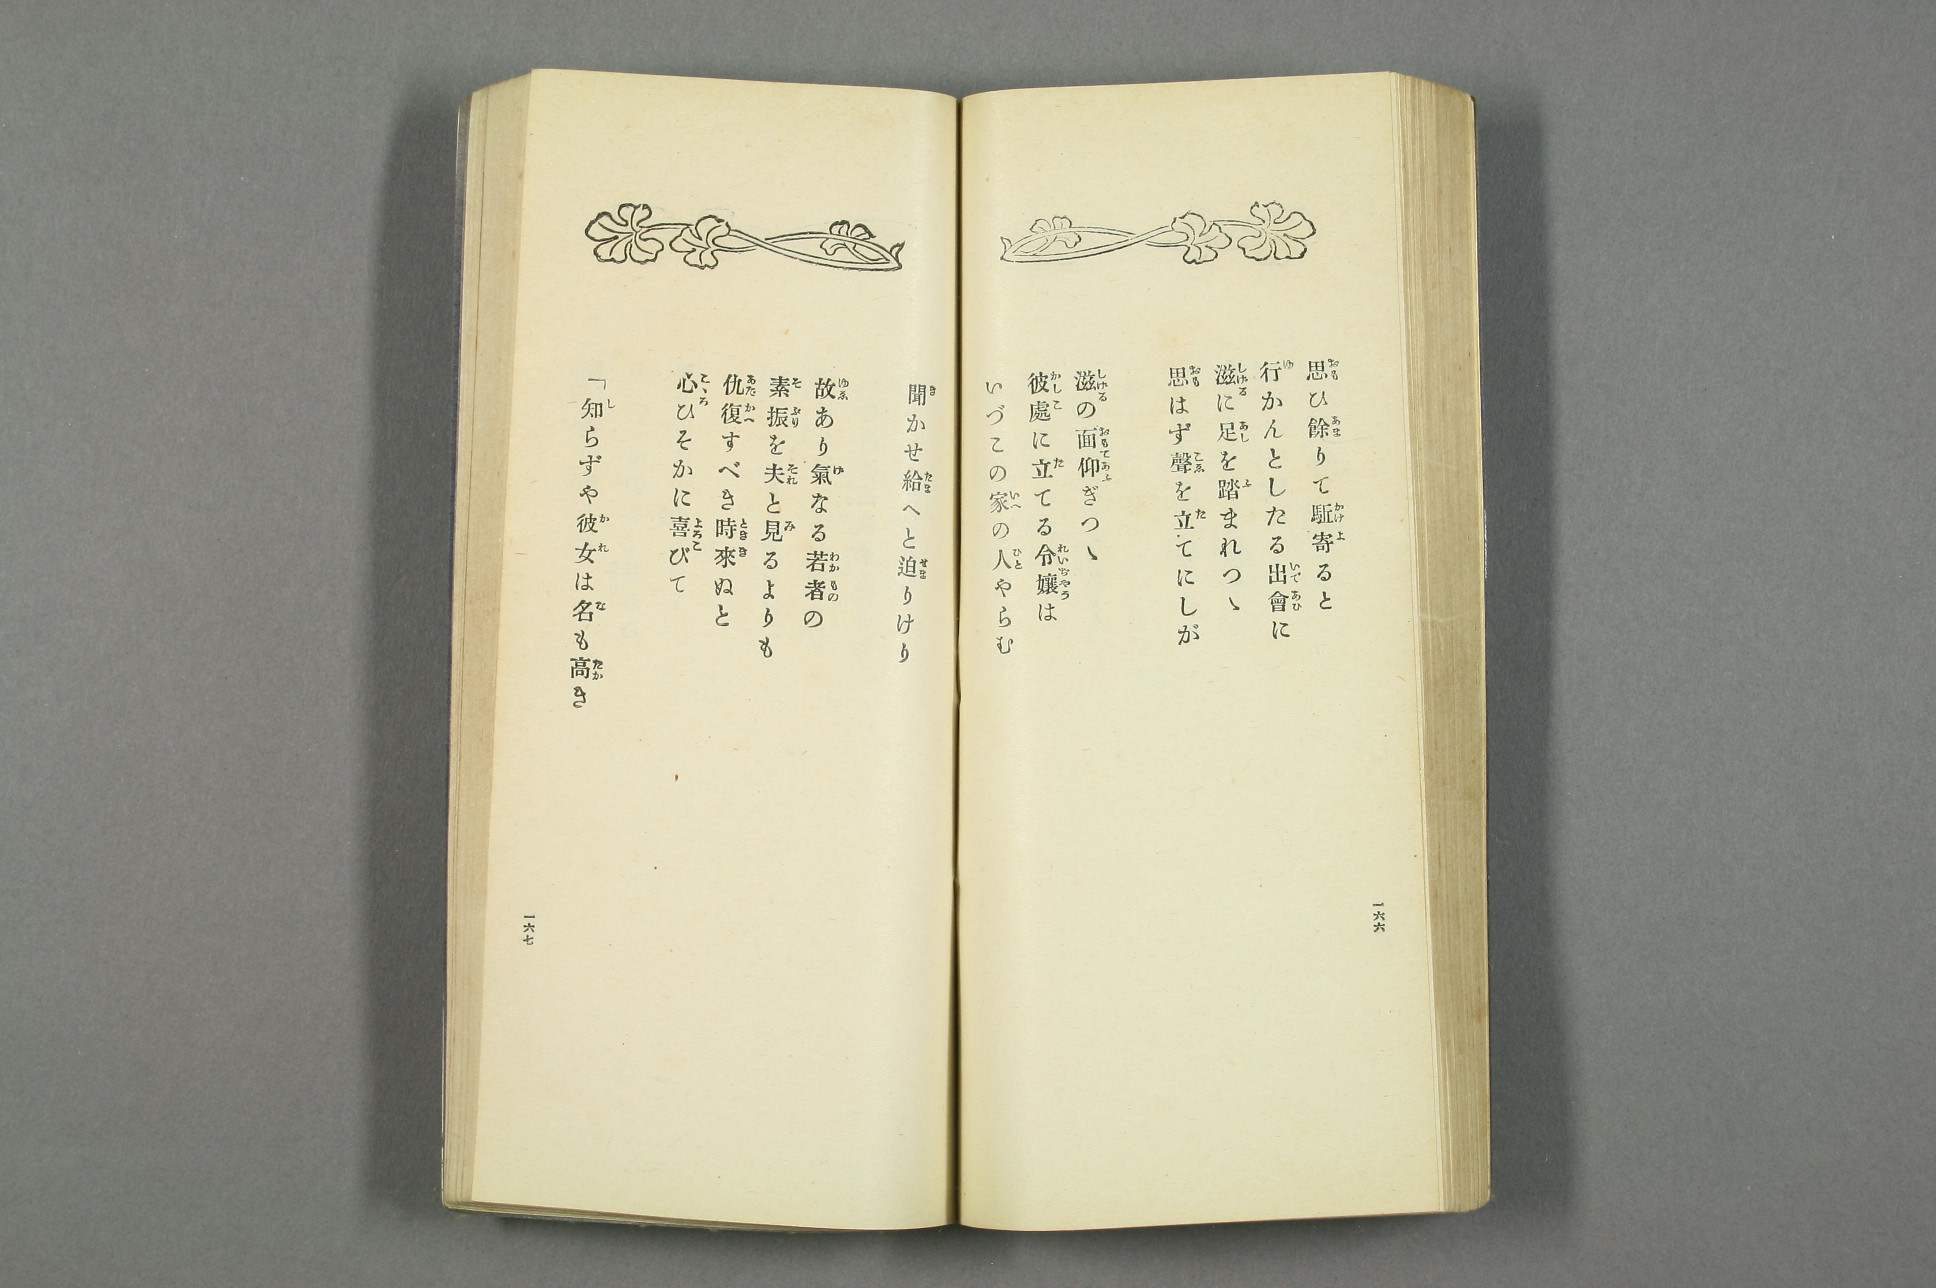 思ひ餘りて駈寄ると
行かんとしたる出會に
滋に足を踏まれつゝ
思はず聲を立てにしが
滋の面仰ぎつゝ
彼處に立てる令孃は
いづこの家の人やらむ
一六六
聞かせ給へと迫りけり
故あり氣なる若者の
素振を夫と見るよりも
仇復すべき時來ぬと
心ひそかに喜びて
「知らずや彼女は名も高き
一六七